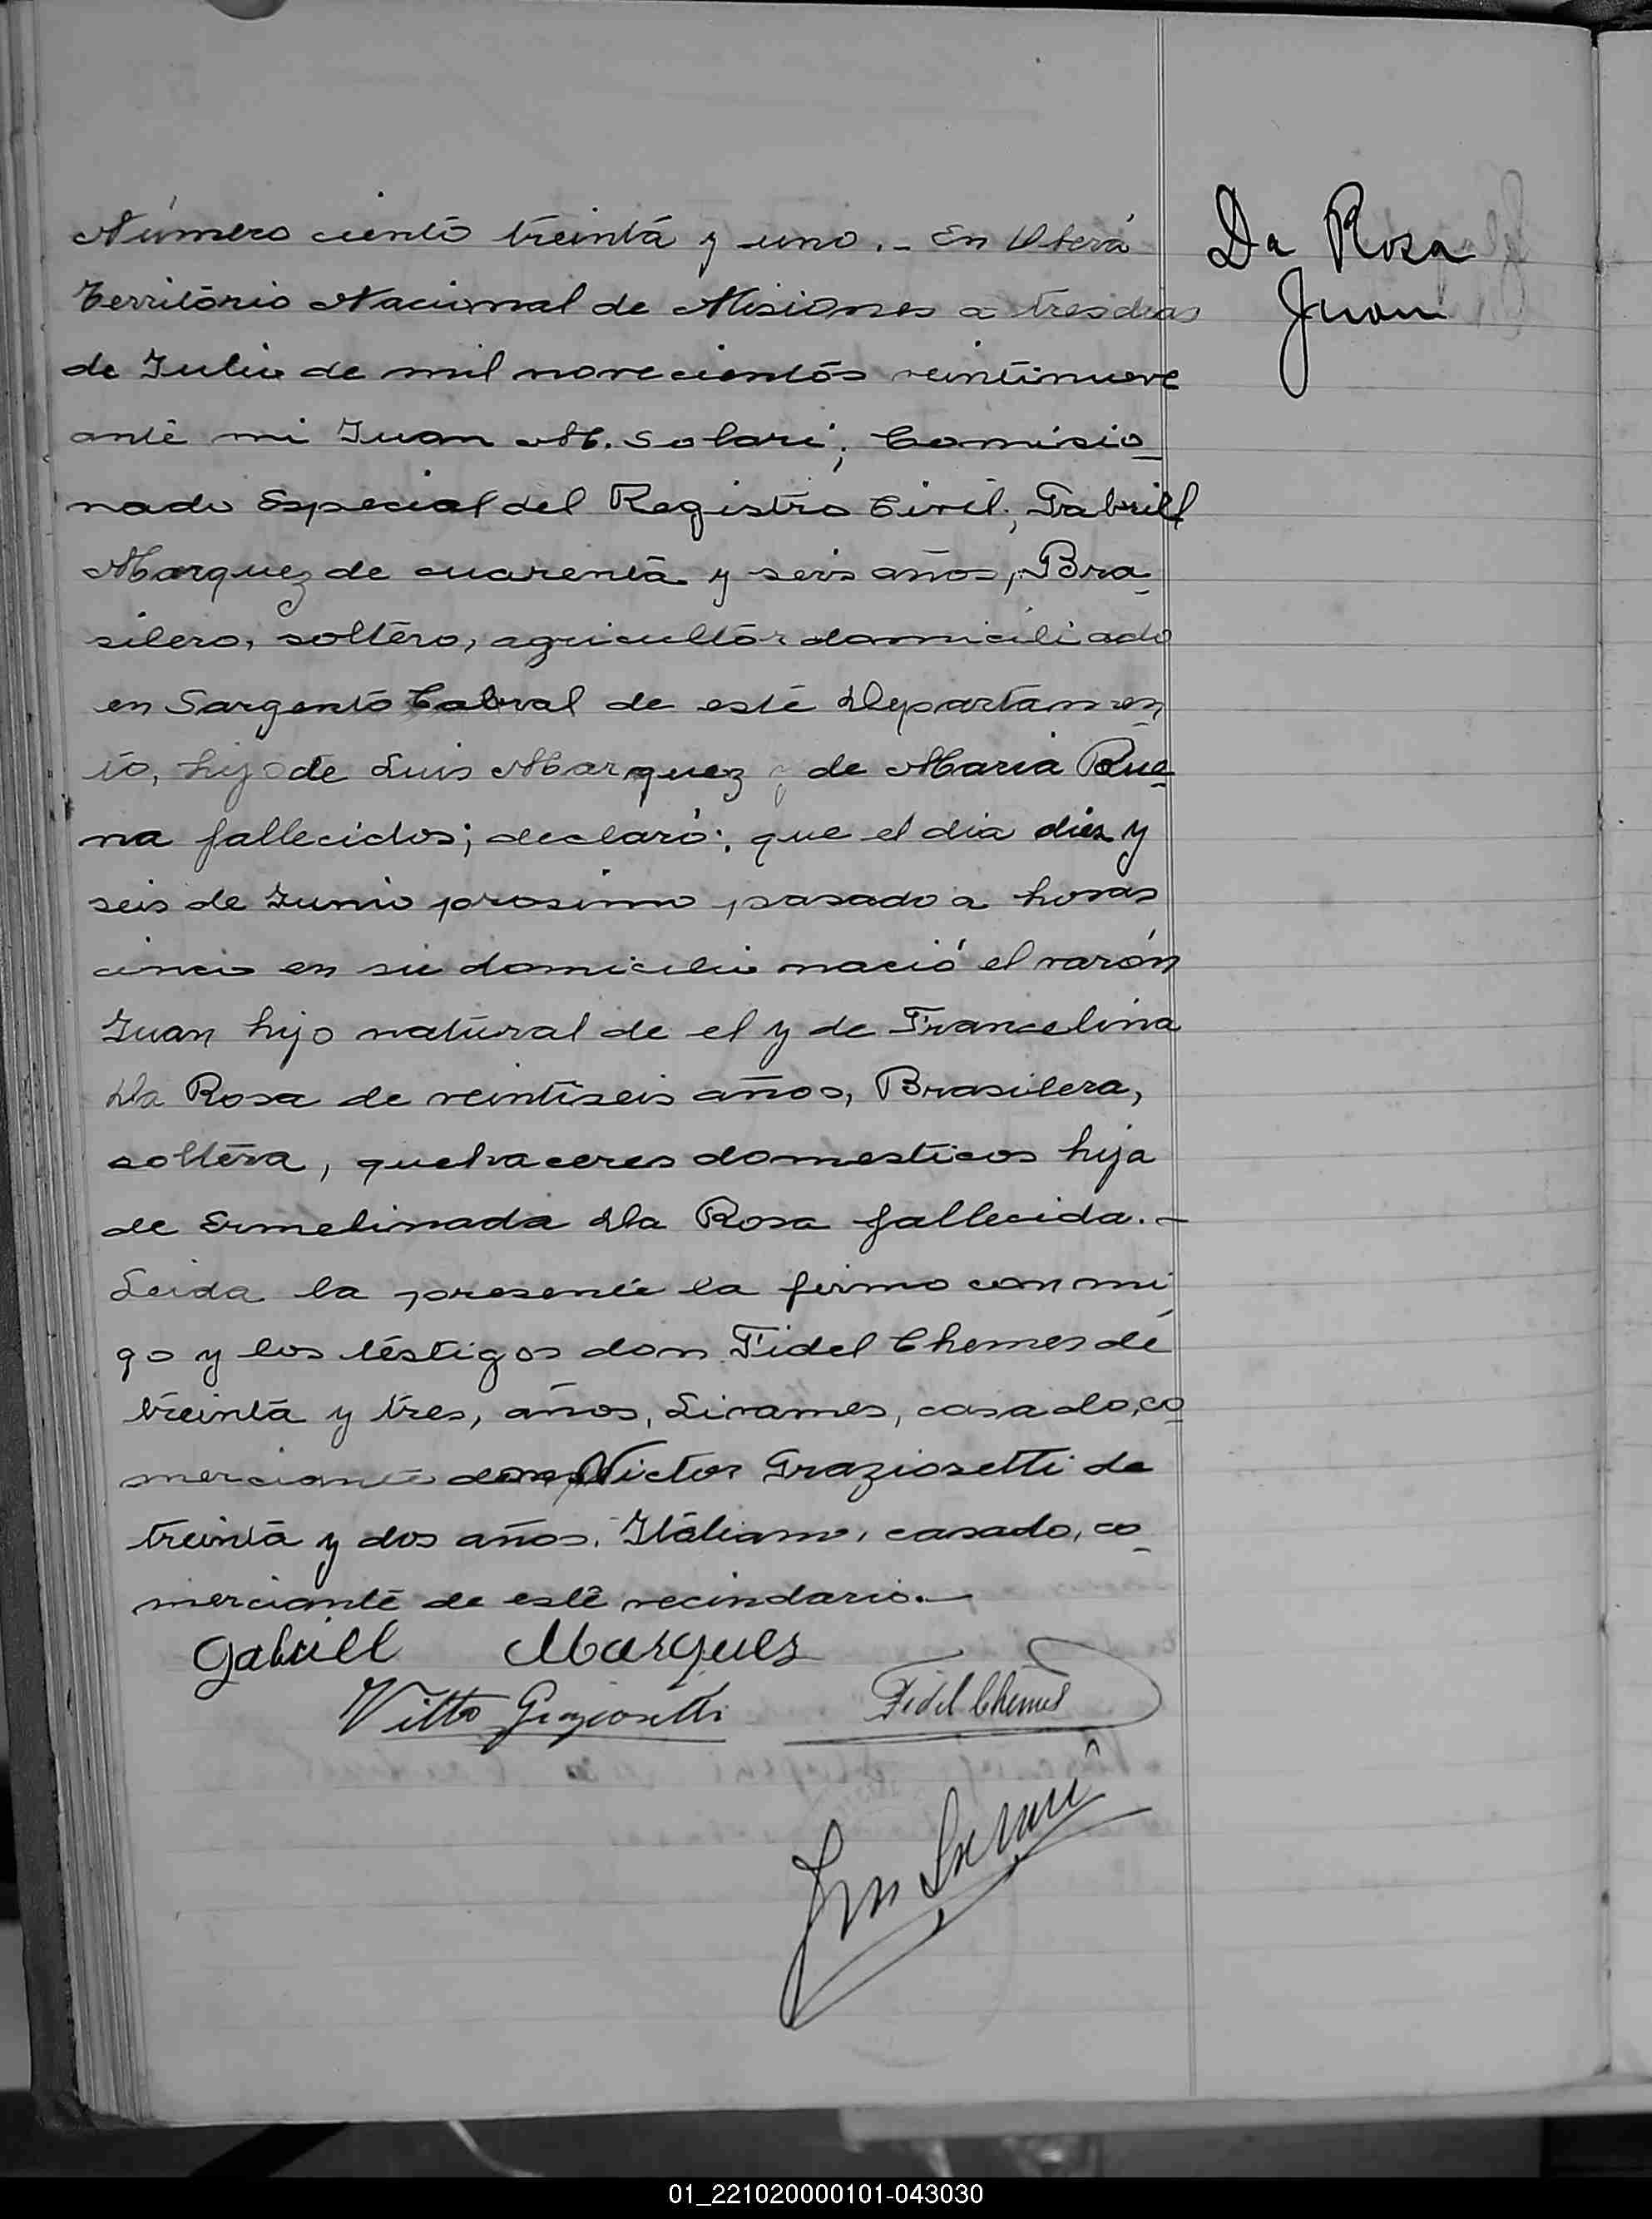 Número ciento treinta y uno.- En Oberá
Da Rosa
Juan
Territorio Nacional de Misiones a tres dias
de Julio de mil novecientos veintinueve
ante mi Juan M. Solari, Comisio
nado Especial del Registro Civil, Gabriel
Marquez de cuarenta y seis años, Bra
silero, soltero, agricultor domiciliado
en Sargento Cabral de este Departamen
to, hijo de Luis Marquez y de Maria
na fallecidos; declaró: que el dia diez y
seis de Junio prosimo pasado a horas
cinco en su domicilio nació el varón
Juan hijo natural de el y de Francelina
Da Rosa de veintiseis años, Brasilera,
soltera, quehaceres domesticos hija
de Ermelinada Da Rosa fallecida.-
Leida la presente la firmo con mi
go y los testigos don Fidel Chemes de
treinta y tres, años, casado, co
merciante Victor Graziosetti de
treinta y dos años, Italiano, casado, co
merciante de este vecindario.-
Gabriell Marques
Vitto Graziosetti Fidel Chemes
01_221020000101-043030